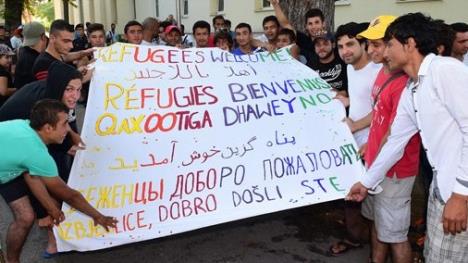 REFUGEES WELCOME
اهلا باللاجئين
RÉFUGIÉS BIENVENUE
QAXOOTIGA DHAWEYNO
پناه گزین خوش آمدید
БЕЖЕНЦЫ ДОБРО ПОЖАЛОВАТ
IZBJEGLICE, DOBRO DOŠLI STE